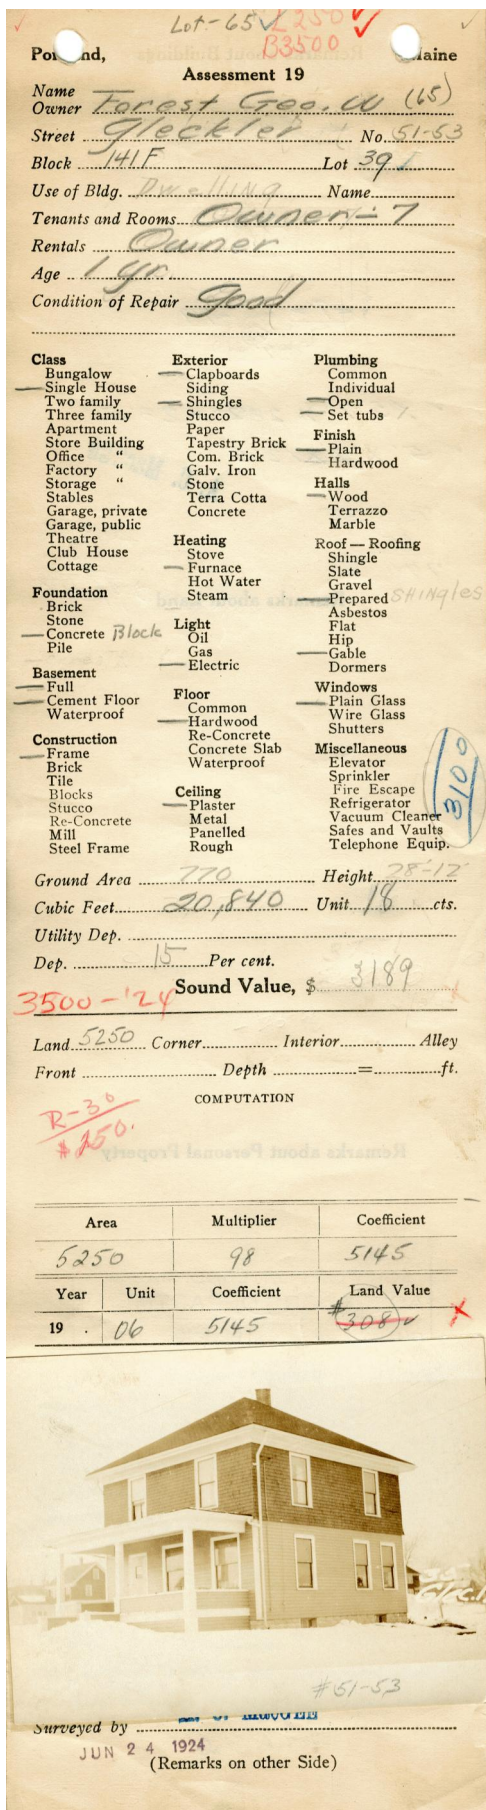 Lot - 65 L 250
B 3500
Portland, Maine
Assessment 19
Name
Owner Forest Geo. W (65)
Street Gleckler No. 51-53
Block 141F Lot 39
Use of Bldg. Dwelling Name
Tenants and Rooms Owner - 7
Rentals Owner
Age 1 yr.
Condition of Repair good
Class
Bungalow
Single House
Two family
Three family
Apartment
Store Building
Office "
Factory "
Storage "
Stables
Garage, private
Garage, public
Theatre
Club House
Cottage
Foundation
Brick
Stone
Concrete Block
Pile
Basement
Full
Cement Floor
Waterproof
Construction
Frame
Brick
Tile
Blocks
Stucco
Re-Concrete
Mill
Steel Frame
Exterior
Clapboards
Siding
Shingles
Stucco
Paper
Tapestry Brick
Com. Brick
Galv. Iron
Stone
Terra Cotta
Concrete
Heating
Stove
Furnace
Hot Water
Steam
Light
Oil
Gas
Electric
Floor
Common
Hardwood
Re-Concrete
Concrete Slab
Waterproof
Ceiling
Plaster
Metal
Panelled
Rough
Plumbing
Common
Individual
Open
Set tubs
Finish
Plain
Hardwood
Halls
Wood
Terrazzo
Marble
Roof — Roofing
Shingle
Slate
Gravel
Prepared SHINGles
Asbestos
Flat
Hip
Gable
Dormers
Windows
Plain Glass
Wire Glass
Shutters
Miscellaneous
Elevator
Sprinkler
Fire Escape
Refrigerator
Vacuum Cleaner
Safes and Vaults
Telephone Equip.
3100
Ground Area 770 Height 28'-12'
Cubic Feet 20,840 Unit 18 cts.
Utility Dep.
Dep. 15 Per cent.
Sound Value, $ 3189
3500-'24
Land 5250 Corner Interior Alley
Front Depth = ft.
COMPUTATION
R-30
$250.
Area Multiplier Coefficient
5250 98 5145
Year Unit Coefficient Land Value
19 . 06 5145 $308
#51-53
Surveyed by
JUN 24 1924
(Remarks on other Side)